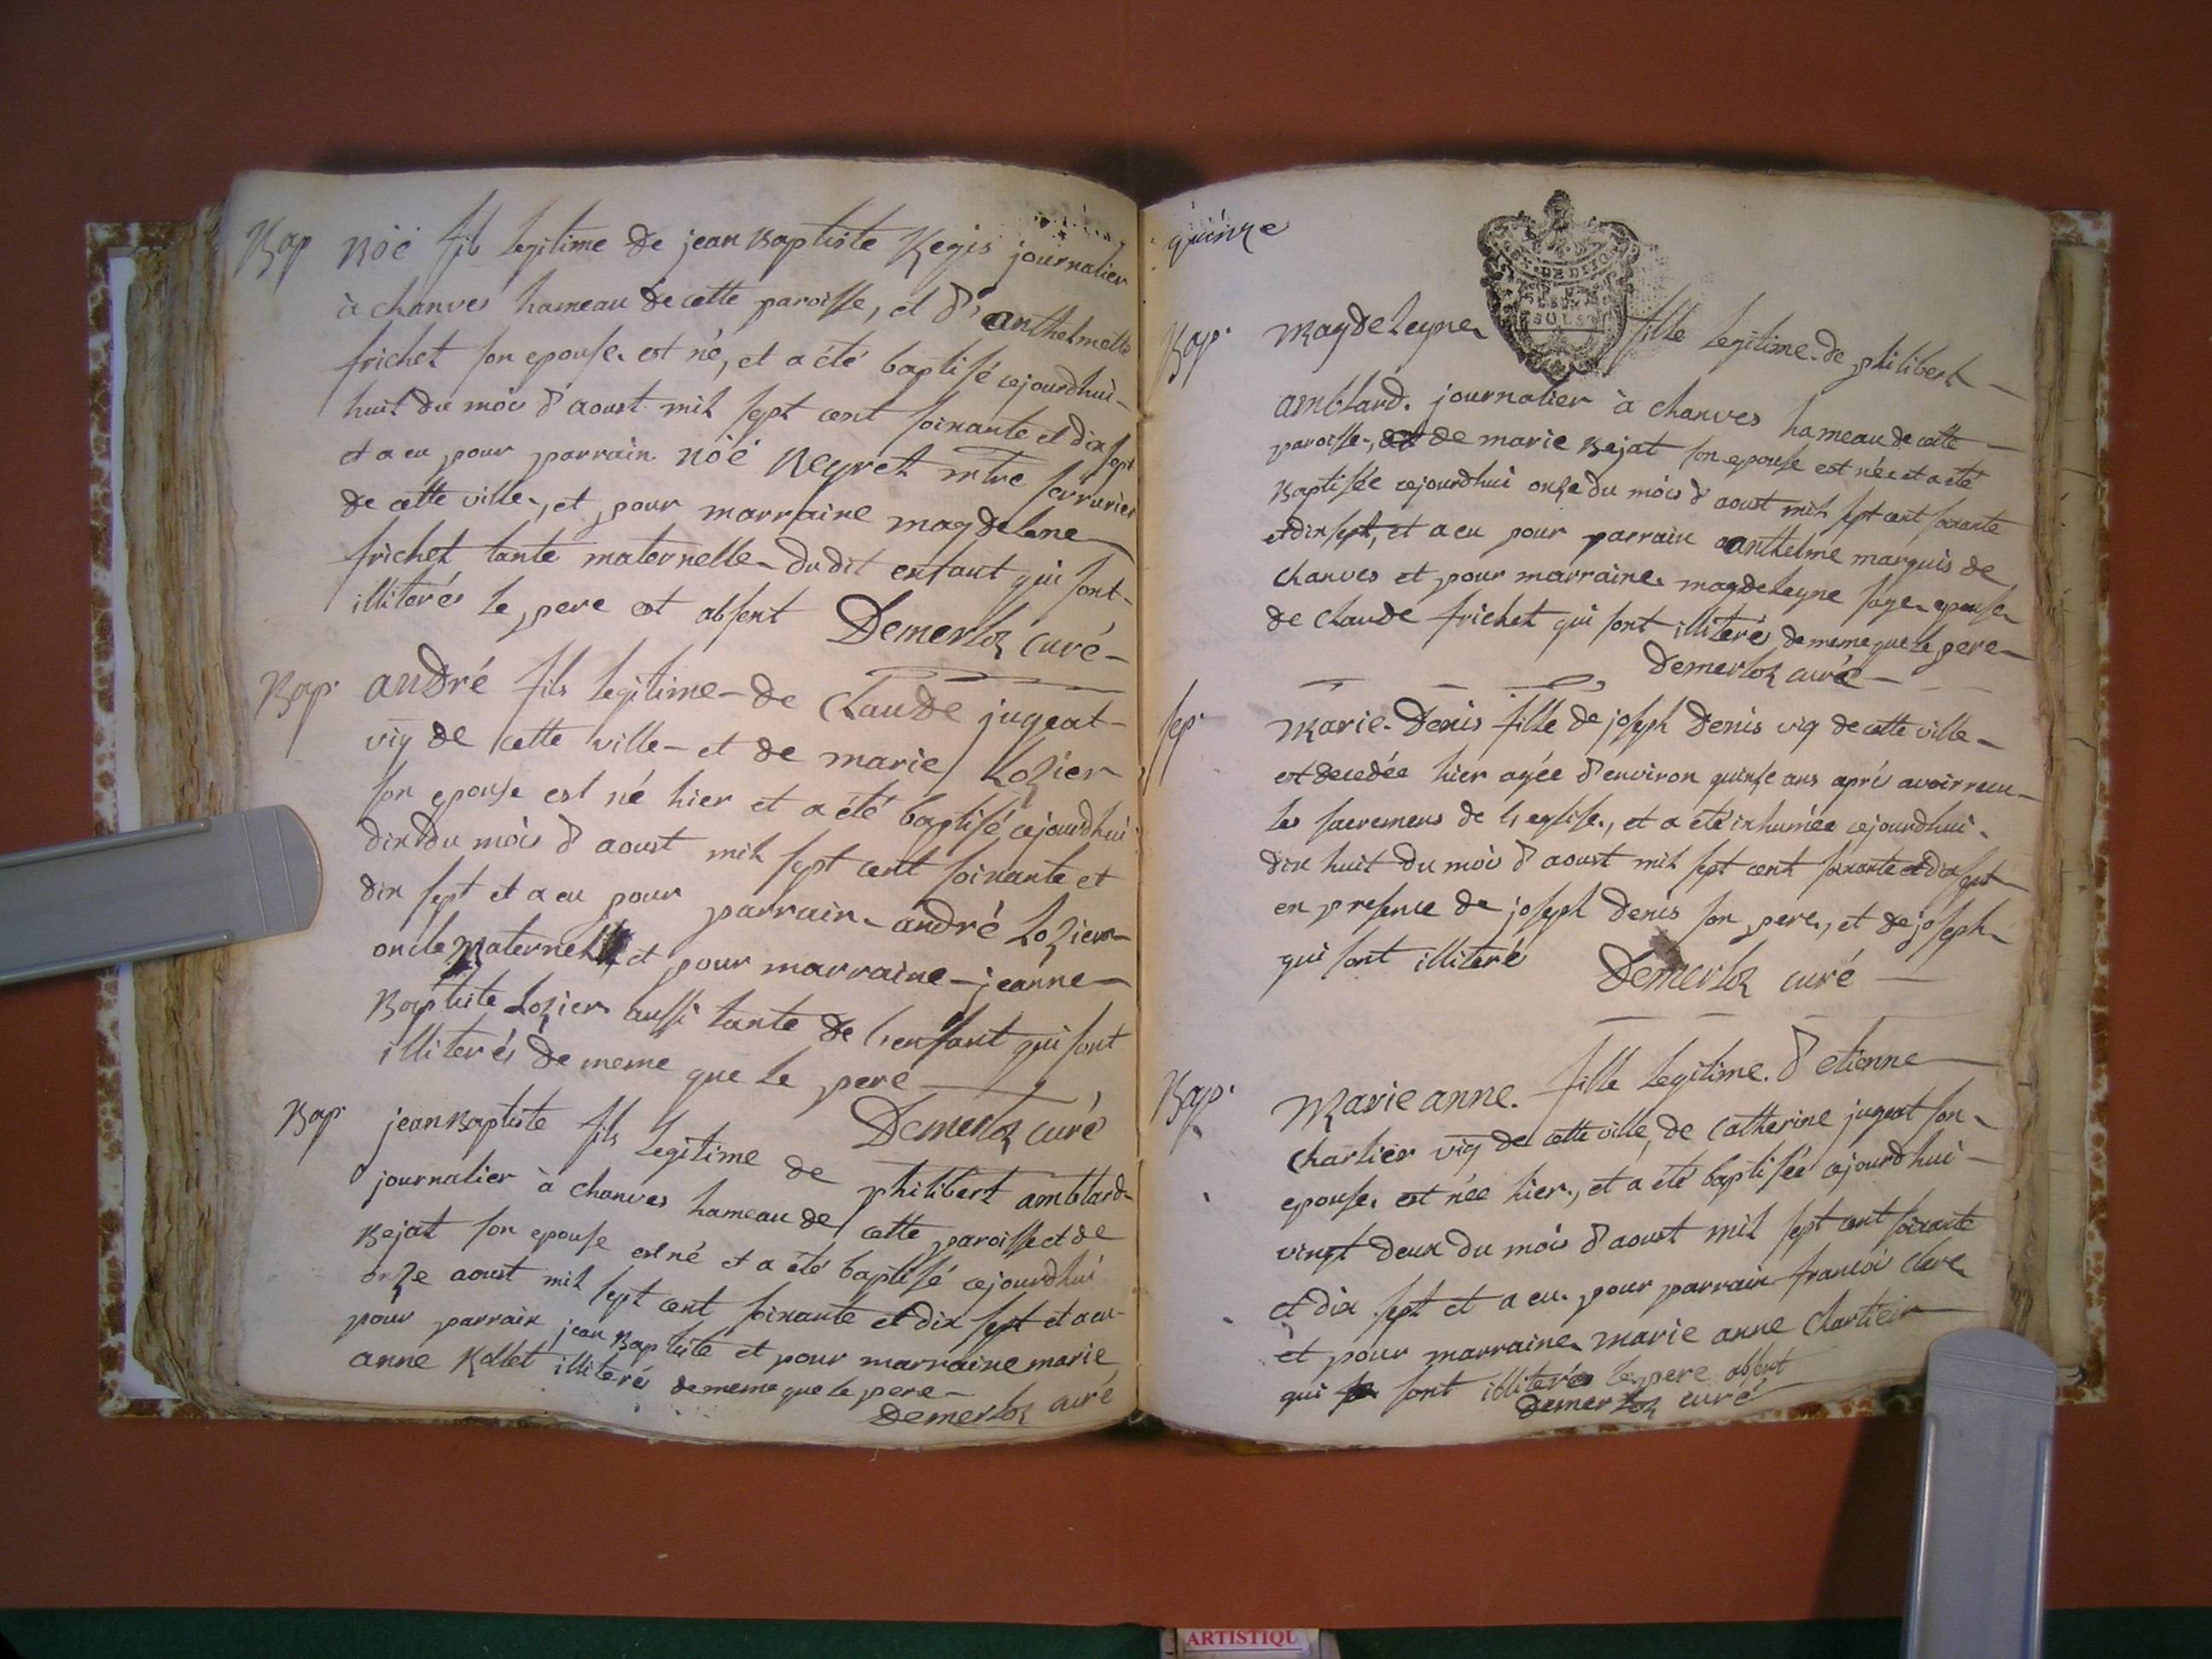 Bap Nöé fils legitime de jean Baptiste Regis journalier
à chanves hameau de cette paroisse, et d'anthelmette
frichet son epouse est né, et a été baptisé cejourdhui
huit du mois d'aoust mil sept cent soixante et dix sept
et a eu pour parrain nöé Neyret mtre serrurier
de cette ville, et pour marraine magdelene
frichet tante maternelle dudit enfant qui sont
illiterés le pere est absent Demerloz curé
Bap andré fils legitime de Claude jugeat
vig de cette ville et de marie Lozier
son epouse est né hier et a été baptisé cejourdhui
dix du mois d'aoust mil sept cent soixante et
dix sept et a eu pour parrain andré Lozier
oncle maternel et pour marraine jeanne
Baptiste Lozier aussi tante de l'enfant qui sont
illiterés de meme que le pere
Demerloz curé
Bap jean Baptiste fils legitime de philibert amblard
journalier à chanves hameau de cette paroisse et de
Bejat son epouse est né et a été baptisé cejourdhui
onze aoust mil sept cent soixante et dix sept et a eu
pour parrain jean Baptiste et pour marraine marie
anne Rollet illiterés de meme que le pere
Demerloz curé
quinze
GEN. DE DIJON
SOLS
Bap magdeleyne fille legitime de philibert
amblard journalier à chanves hameau de cette
paroisse, et de marie Bejat son epouse est née et a été
Baptisée cejourdhui onze du mois d'aoust mil sept cent soixante
et dix sept, et a eu pour parrain anthelme marquis de
chanves et pour marraine magdeleyne sage epouse
de claude frichet qui sont illiterés de meme que le pere
Demerloz curé
sep marie Denis fille de joseph Denis vig de cette ville
est decedée hier agée d'environ quinze ans aprés avoir recu
les sacremens de l'eglise, et a été inhumée cejourdhui
dix huit du mois d'aoust mil sept cent soixante et dix sept
en presence de joseph Denis son pere, et de joseph
qui sont illiteré Demerloz curé
Bap Marie anne fille legitime d'etienne
charlier vig de cette ville, de Catherine jugeat son
epouse est née hier, et a été baptisée cejourdhui
vingt deux du mois d'aoust mil sept cent soixante
et dix sept et a eu pour parrain francois clere
et pour marraine marie anne Chartier
qui sont illiterés le pere absent
Demerloz curé
ARTISTIQU